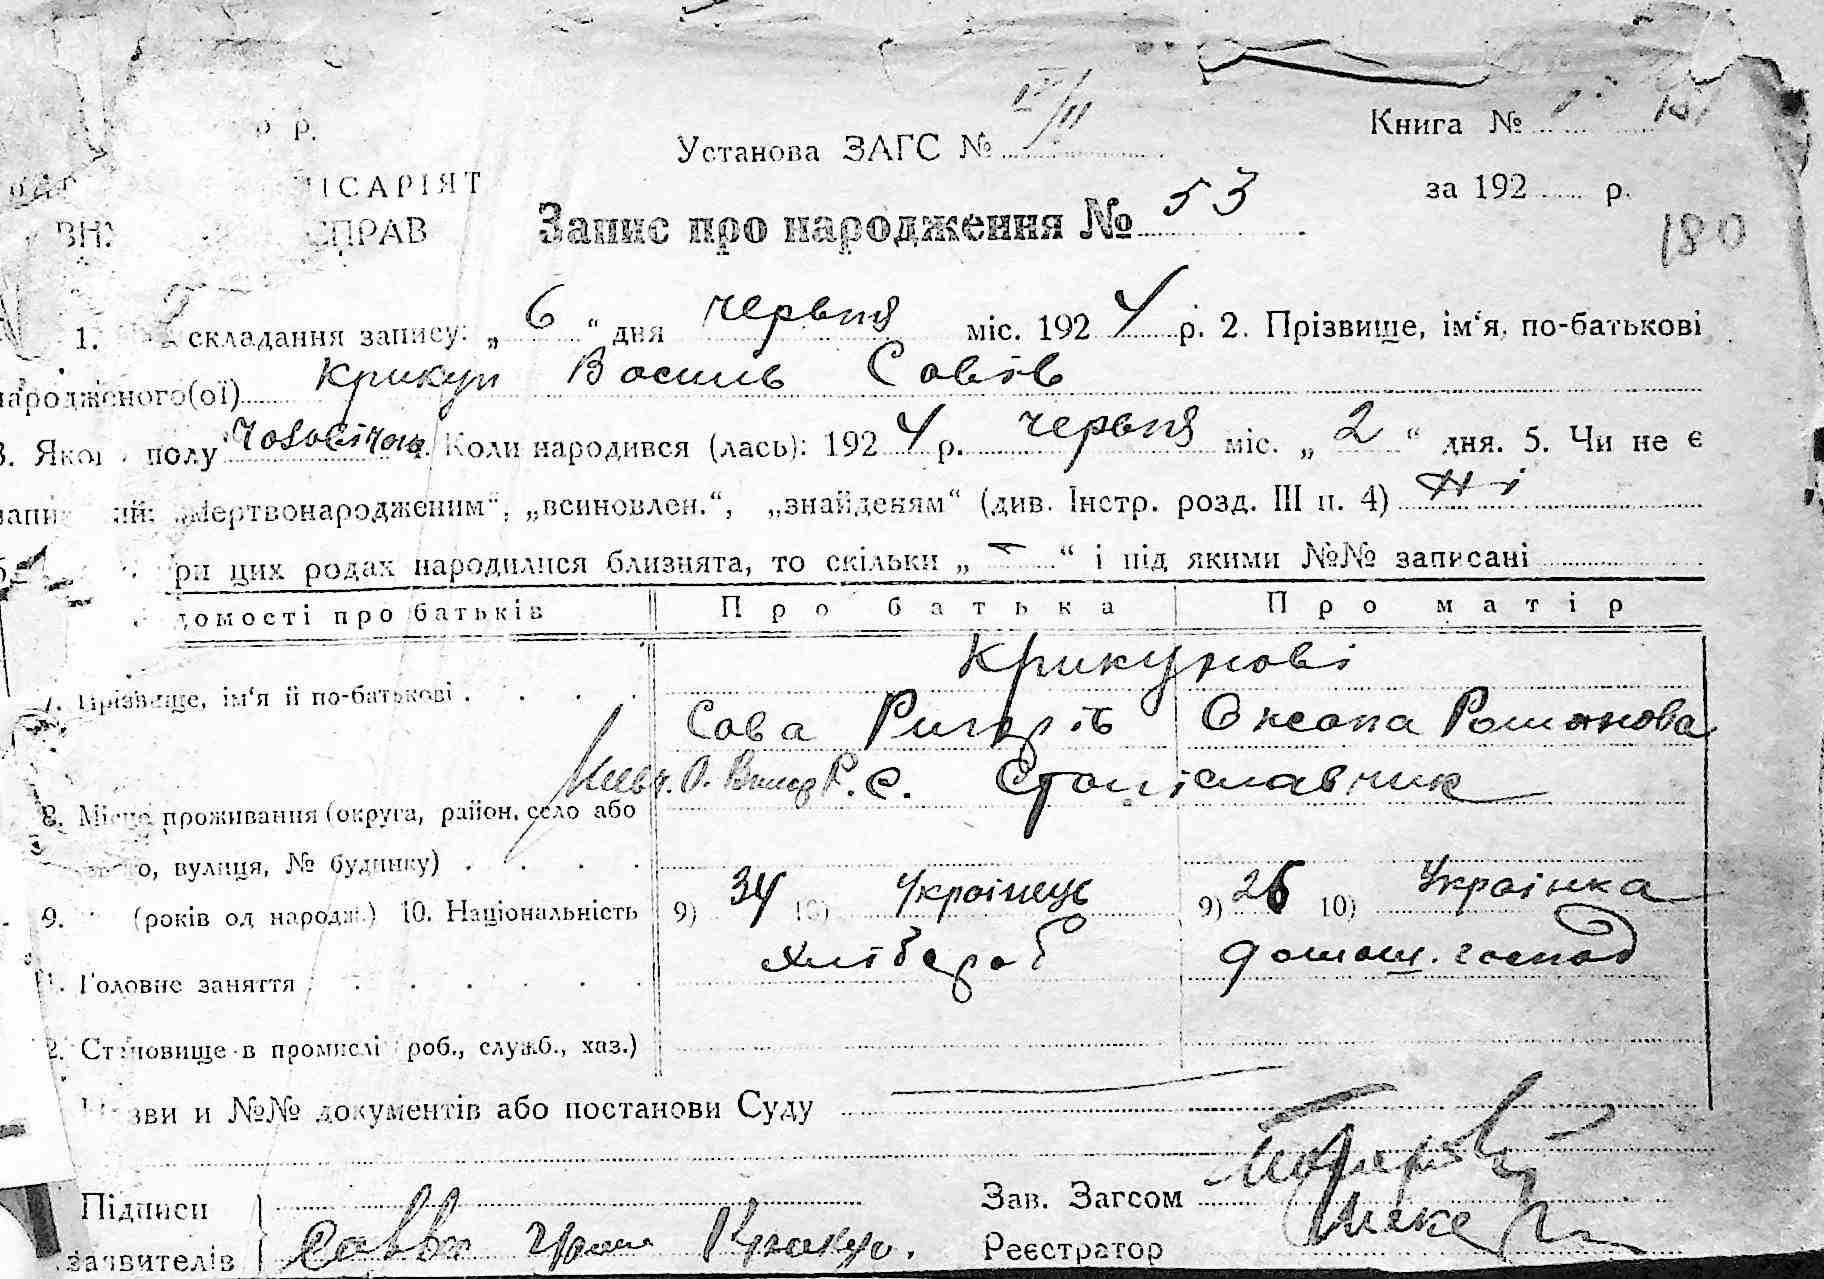 Р. Р.
Установа ЗАГС №
Книга №
ІСАРІЯТ
за 192 р.
СПРАВ
Запис про народження № 53
180
1. складання запису: „ 6 “ дня червня міс. 1924 р. 2. Прізвище, ім‘я, по-батькові
народженого(ої) Крикун Василь Савів
3. Якої полу чоловічого Коли народився (лась): 1924 р. червня міс. „ 2 “ дня. 5. Чи не є
„мертвонародженим“, „всиновлен.“, „знайденям“ (див. Інстр. розд. III п. 4) Ні
при цих родах народилися близнята, то скільки „ – “ і під якими №№ записані
домості про батьків Про батька Про матір
Крикунові
7. Прізвище, ім‘я й по-батькові
Сава Ригорів Оксана Романова
С. Станіславчик
8. Місце проживання (округа, район, село або
вулиця, № будинку)
9. (років од народж.) 10. Національність 9) 34 10) Українець 9) 26 10) Українка
Головне заняття Хлібороб домаш. господ
Становище в промислі (роб., служб., хаз.)
Назви и №№ документів або постанови Суду
Зав. Загсом
Підписи
заявителів Крикун.
Реєстратор